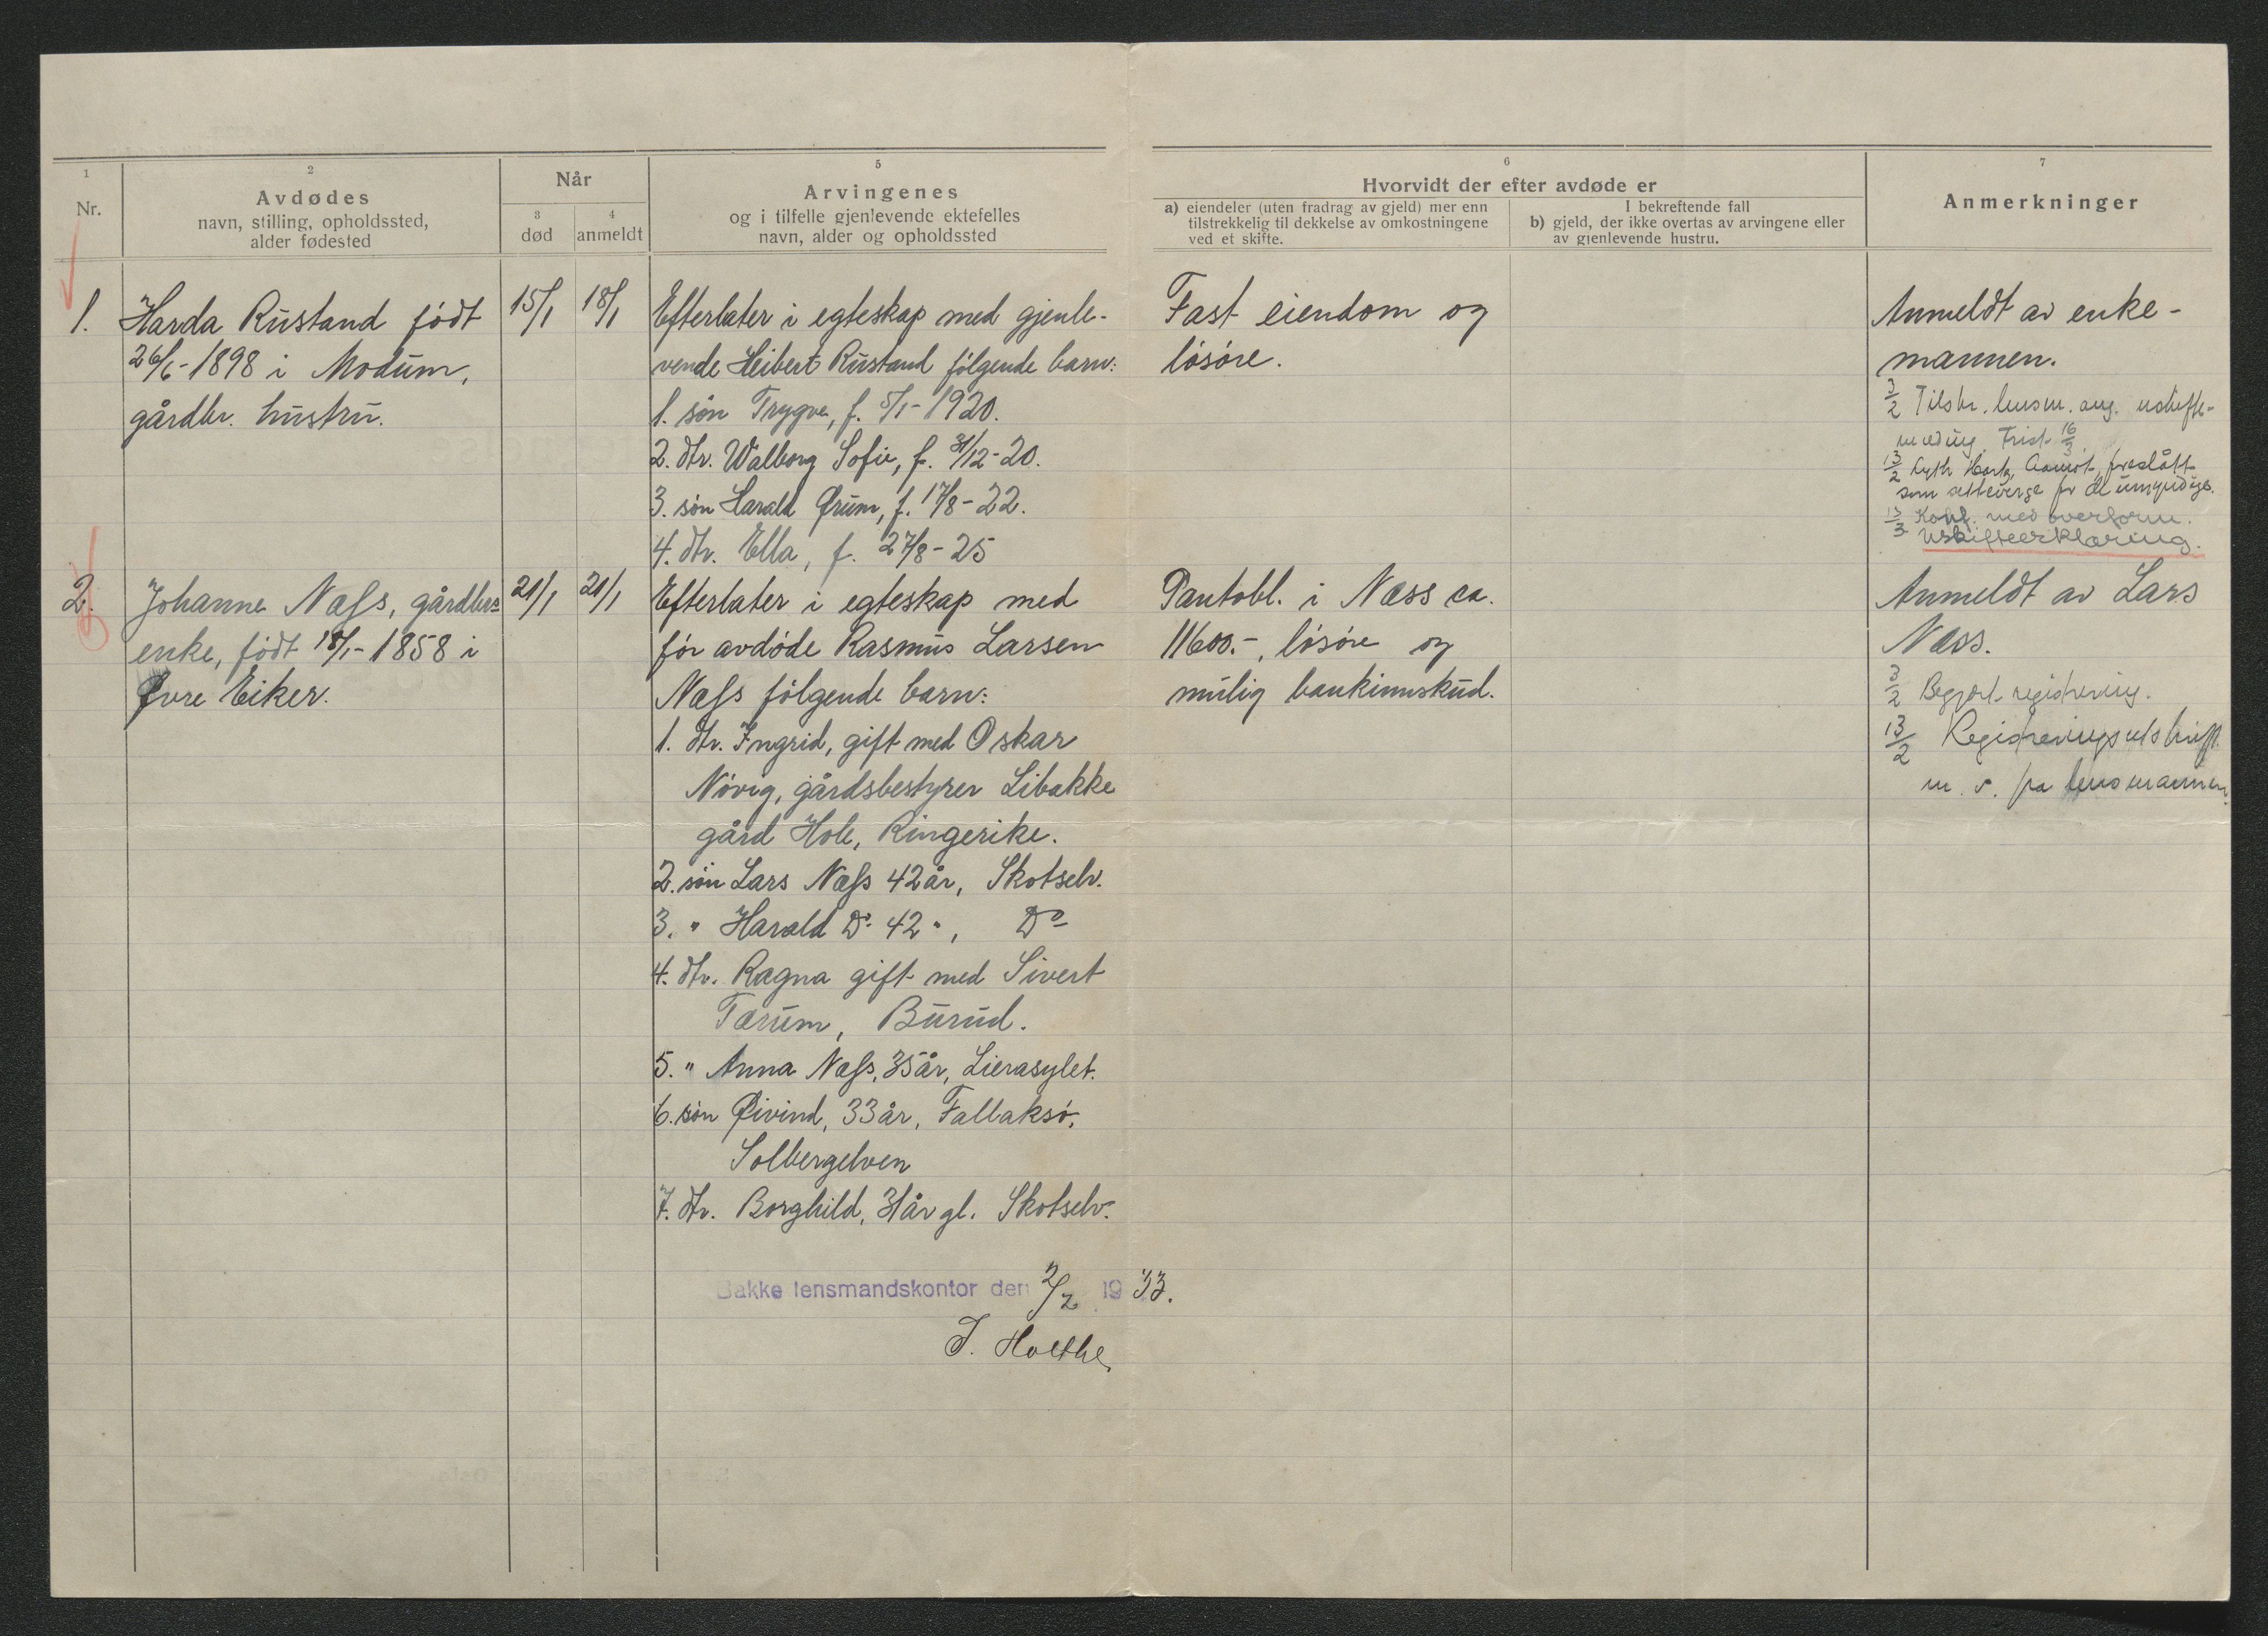 1
Nr.
2
Avdødes
navn, stilling, opholdssted,
alder fødested
Når
3
død
4
anmeldt
5
Arvingenes
og i tilfelle gjenlevende ektefelles
navn, alder og opholdssted
6
Hvorvidt der efter avdøde er
a) eiendeler (uten fradrag av gjeld) mer enn
tilstrekkelig til dekkelse av omkostningene
ved et skifte.
I bekreftende fall
b) gjeld, der ikke overtas av arvingene eller
av gjenlevende hustru.
7
Anmerkninger
1.
Harda Rustand født
26/6-1898 i Modum,
gårdbr. hustru.
15/1
18/1
Efterlater i egteskap med gjenle-
vende Heibert Rustand følgende barn:
1. søn Trygve, f. 5/1-1920.
2. dtr. Walborg Sofie, f. 31/12-20.
3. søn Harald Ørum, f. 17/8-22.
4. dtr. Ella, f. 27/8-25
Fast eiendom og
løsøre.
Anmeldt av enke-
mannen.
3/2 Tilskr. lensm. ang. uskifte-
Frist 16/3
13/2 foreslått
som setteverge for de umyndige.
13/3 Konf. med overform.
Uskifteerklæring.
2.
Johanne Næss, gårdbr.
enke, født 18/1-1858 i
Øvre Eiker.
21/1
21/1
Efterlater i egteskap med
før avdøde Rasmus Larsen
Næss følgende barn:
1. dtr. Ingrid, gift med Oskar
Növig, gårdsbestyrer Libakke
gård Hole, Ringerike.
2. søn Lars Næss 42 år, Skotselv.
3. " Harald Do 42 ", Do
4. dtr. Ragna gift med Sivert
Tærum, Burud.
5. " Anna Næss, 35 år, Lierasylet.
6. søn Øivind, 33 år, Fallaksø,
Solbergelven
7. dtr. Borghild, 31 år gl. Skotselv.
Pantobl. i Næss ca.
11600.-, løsøre og
mulig bankinnskud.
Anmeldt av Lars
Næss.
3/2 Begjært registrering.
13/2 Registreringsutskrift
m. v. fra lensmannen.
Bakke lensmandskontor den 2/2 1933.
J. Holthe